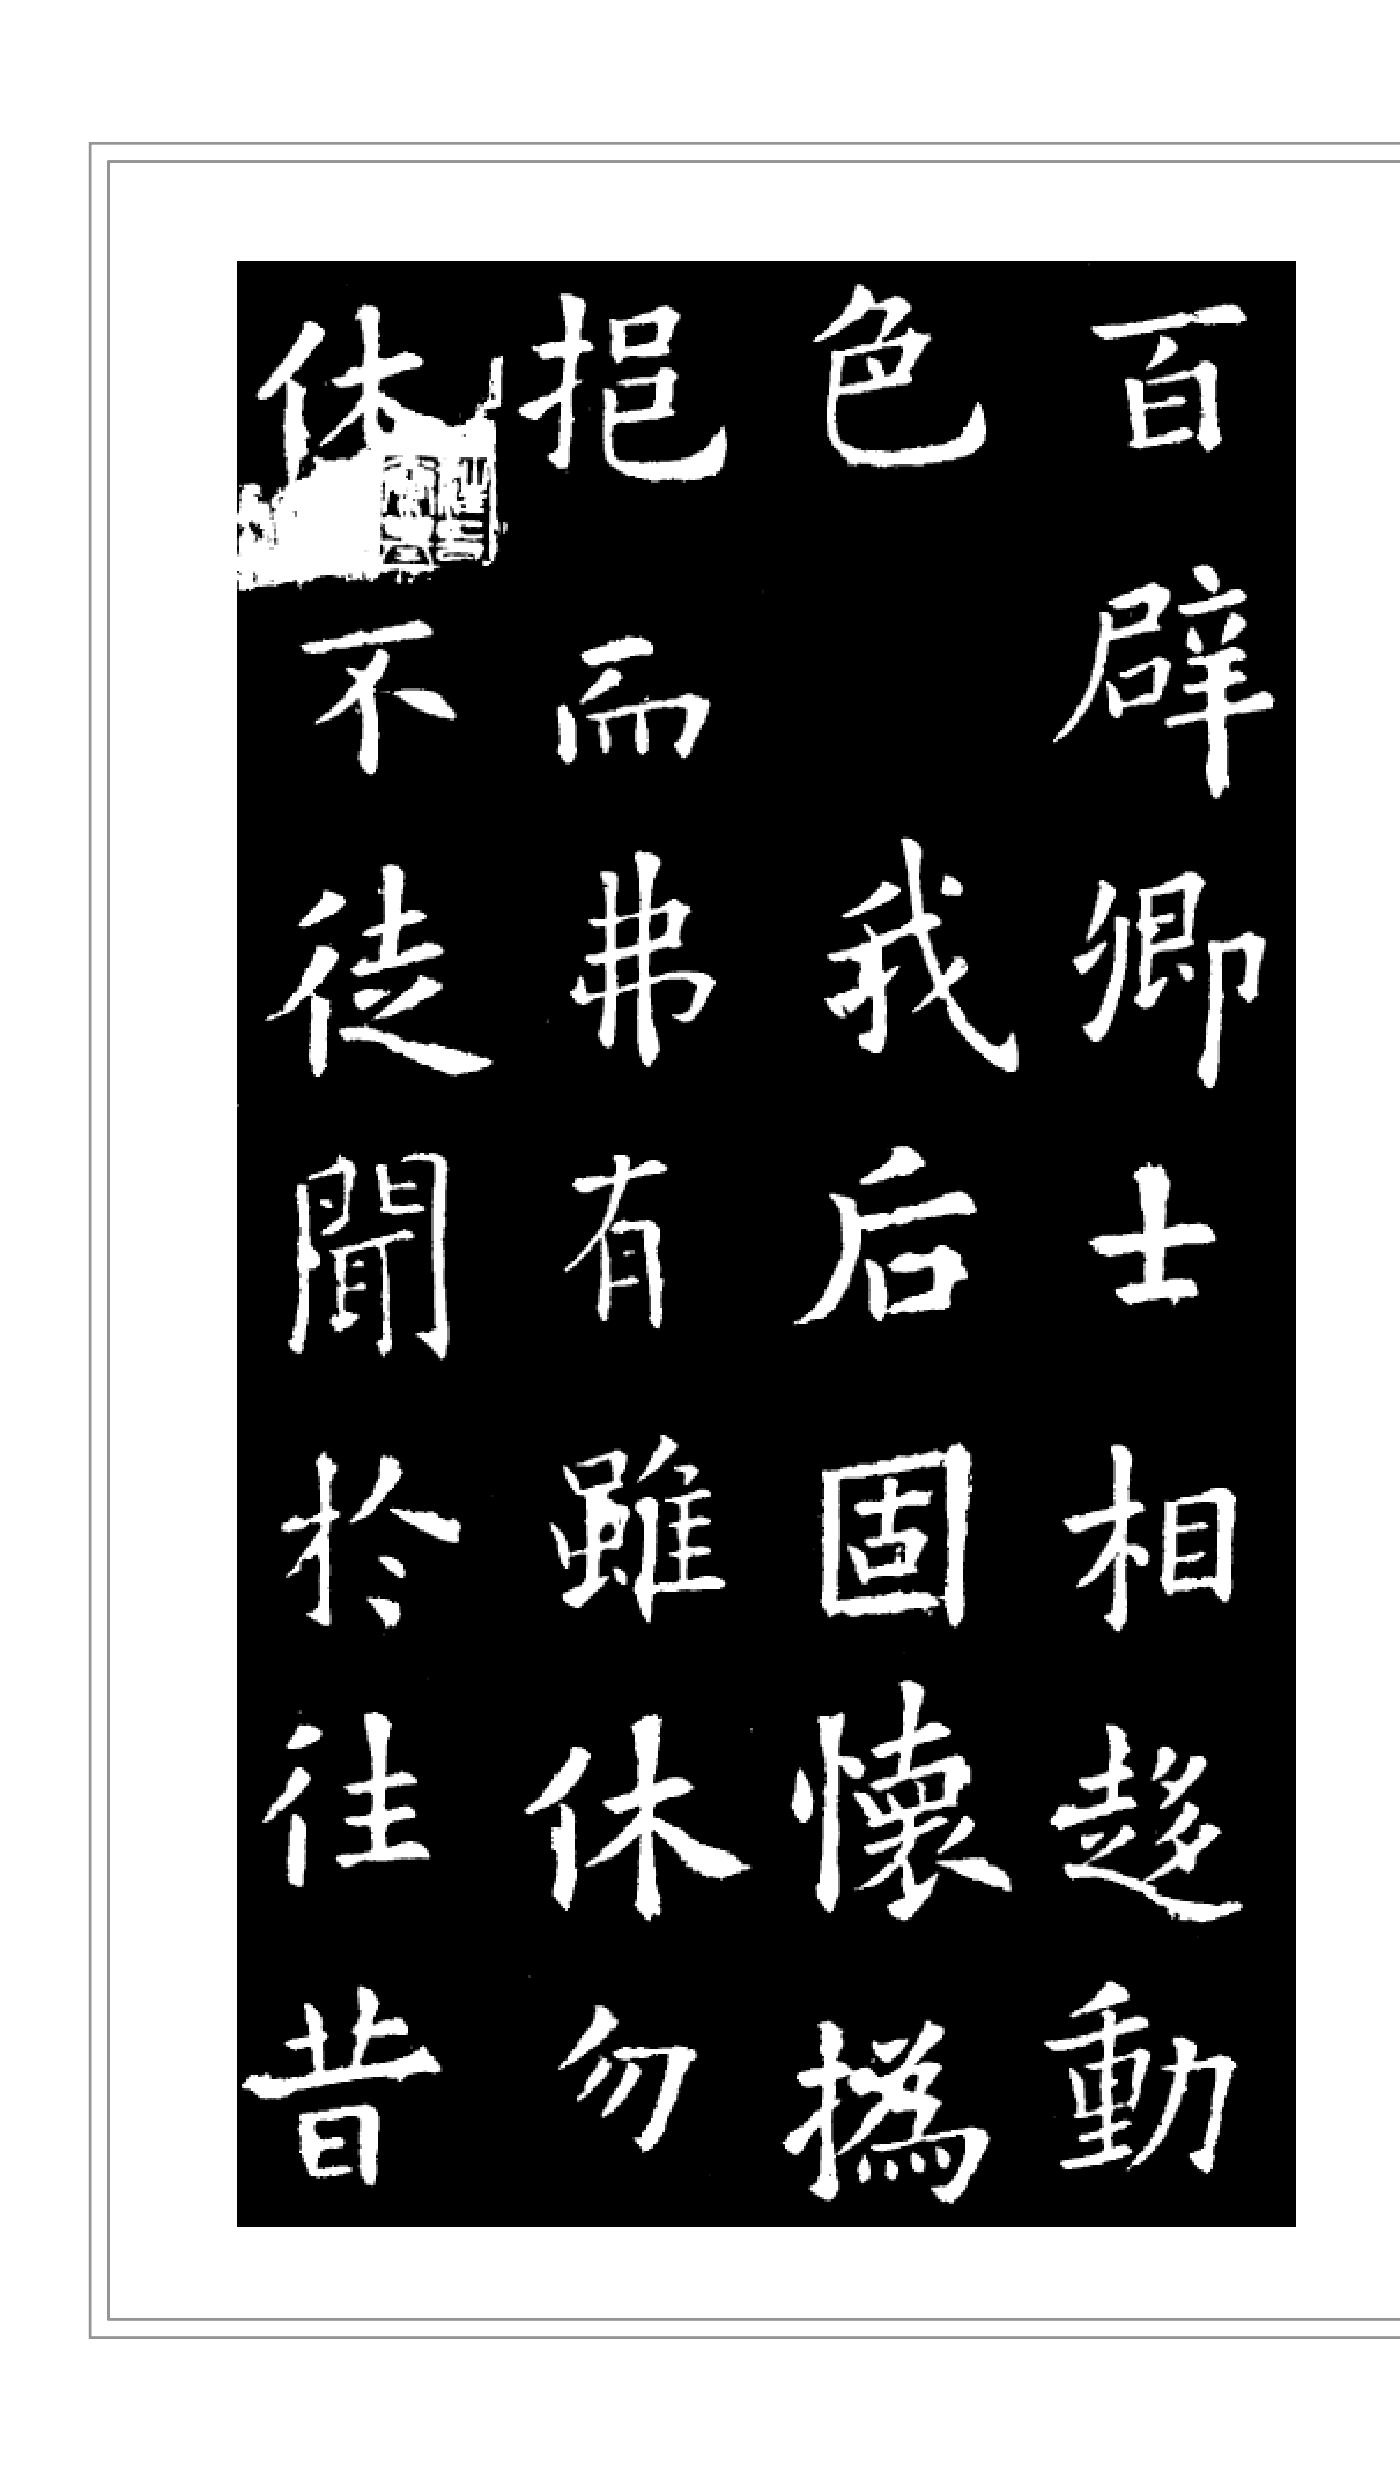 百辟卿士相趍動
色我后固懷撝
挹而弗有雖休勿
休不徒聞於往昔